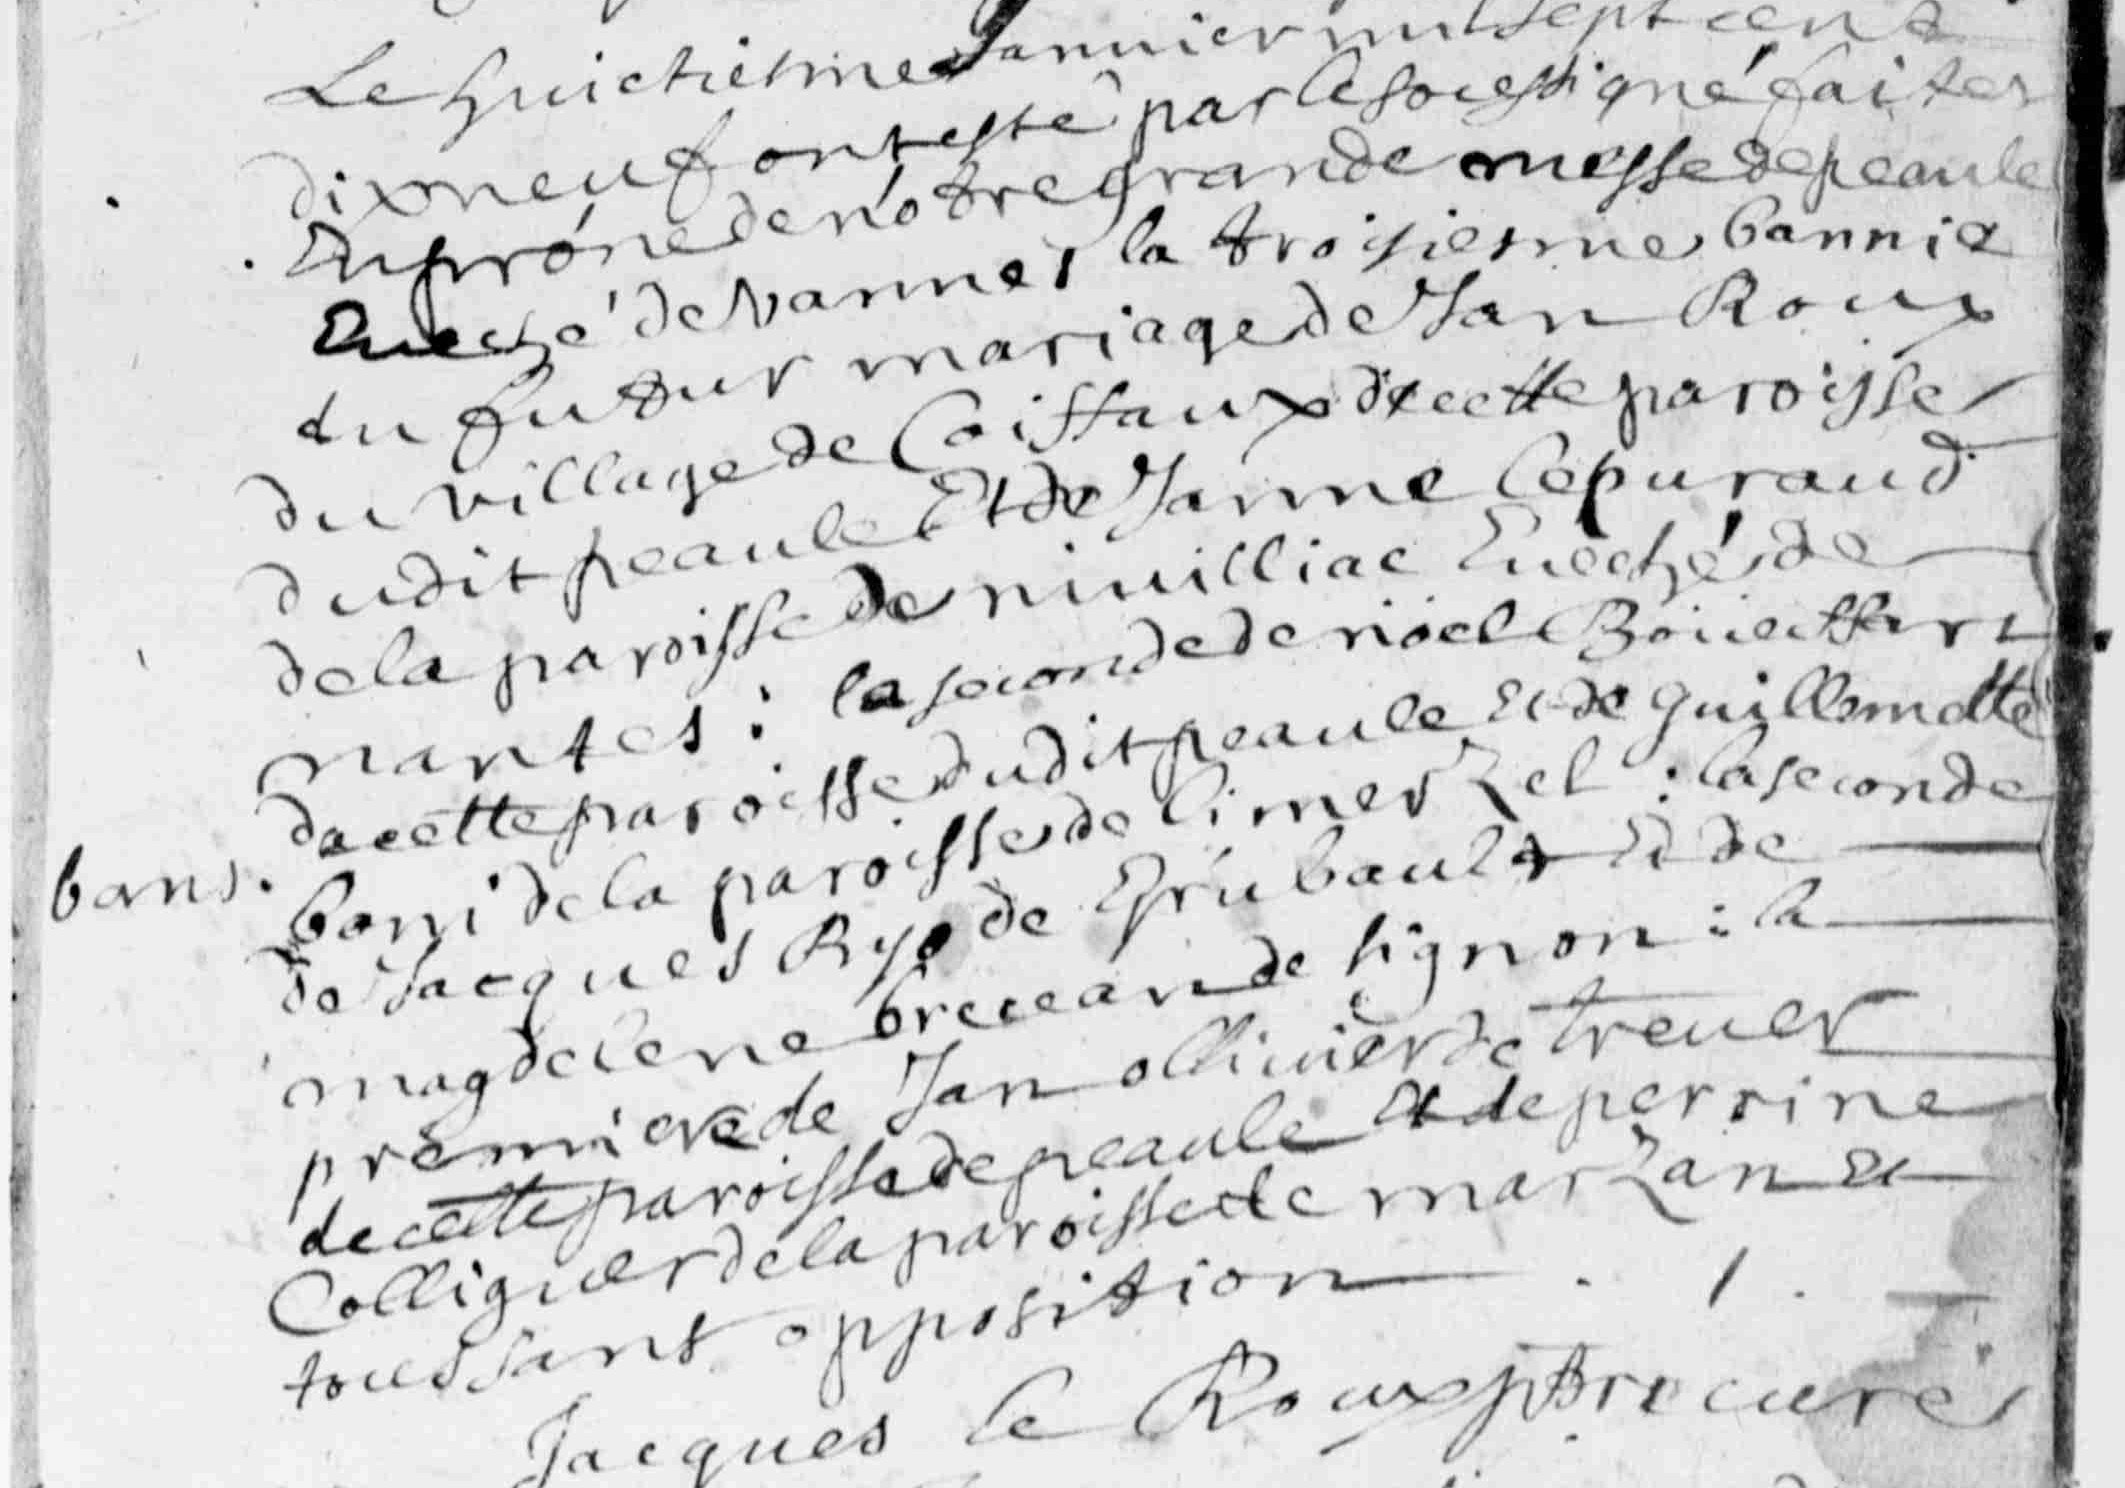 Le huictiesme Januier mil sept cent
dixneuf ont esté par le soussigné faites
Au prône de nôtre grande messe de peaule
Eueché de Vannes la troisiesme bannie
du futur mariage de Jan Roux
du village de Coiffaux de cette paroisse
dudit peaule Et de Janne lepuraud
de la paroisse de niuilliac Eueché de
nantes : la seconde de nöel Boüeffart
de cette paroisse dudit peaule Et de Guillemette
bans.
borri de la paroisse de limerzel : la seconde
de Jacques Ryo de Grubault Et de
magdelene breceau de lignon : la
premiere de Jan olliuier de treuer
de cette paroisse de peaule Et de perrine
Colliguer de la paroisse de marzan Et
tous sans opposition . / .
Jacques le Roux ptre curé